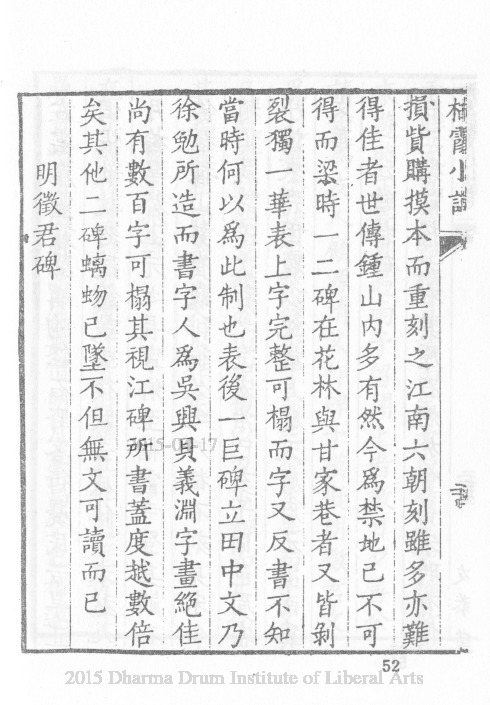 棲霞小誌
損貲購摸本而重刻之江南六朝刻雖多亦難
得佳者世傳鍾山内多有然今爲禁地已不可
得而梁時一二碑在花林與甘家巷者又皆剝
裂獨一華表上字完整可搨而字又反書不知
當時何以爲此制也表後一巨碑立田中文乃
徐勉所造而書字人爲吳興貝義淵字畫絕佳
尚有數百字可搨其視江碑所書蓋度越數倍
矣其他二碑螭蚴已墜不但無文可讀而已
明徵君碑
52
2015 Dharma Drum Institute of Liberal Arts